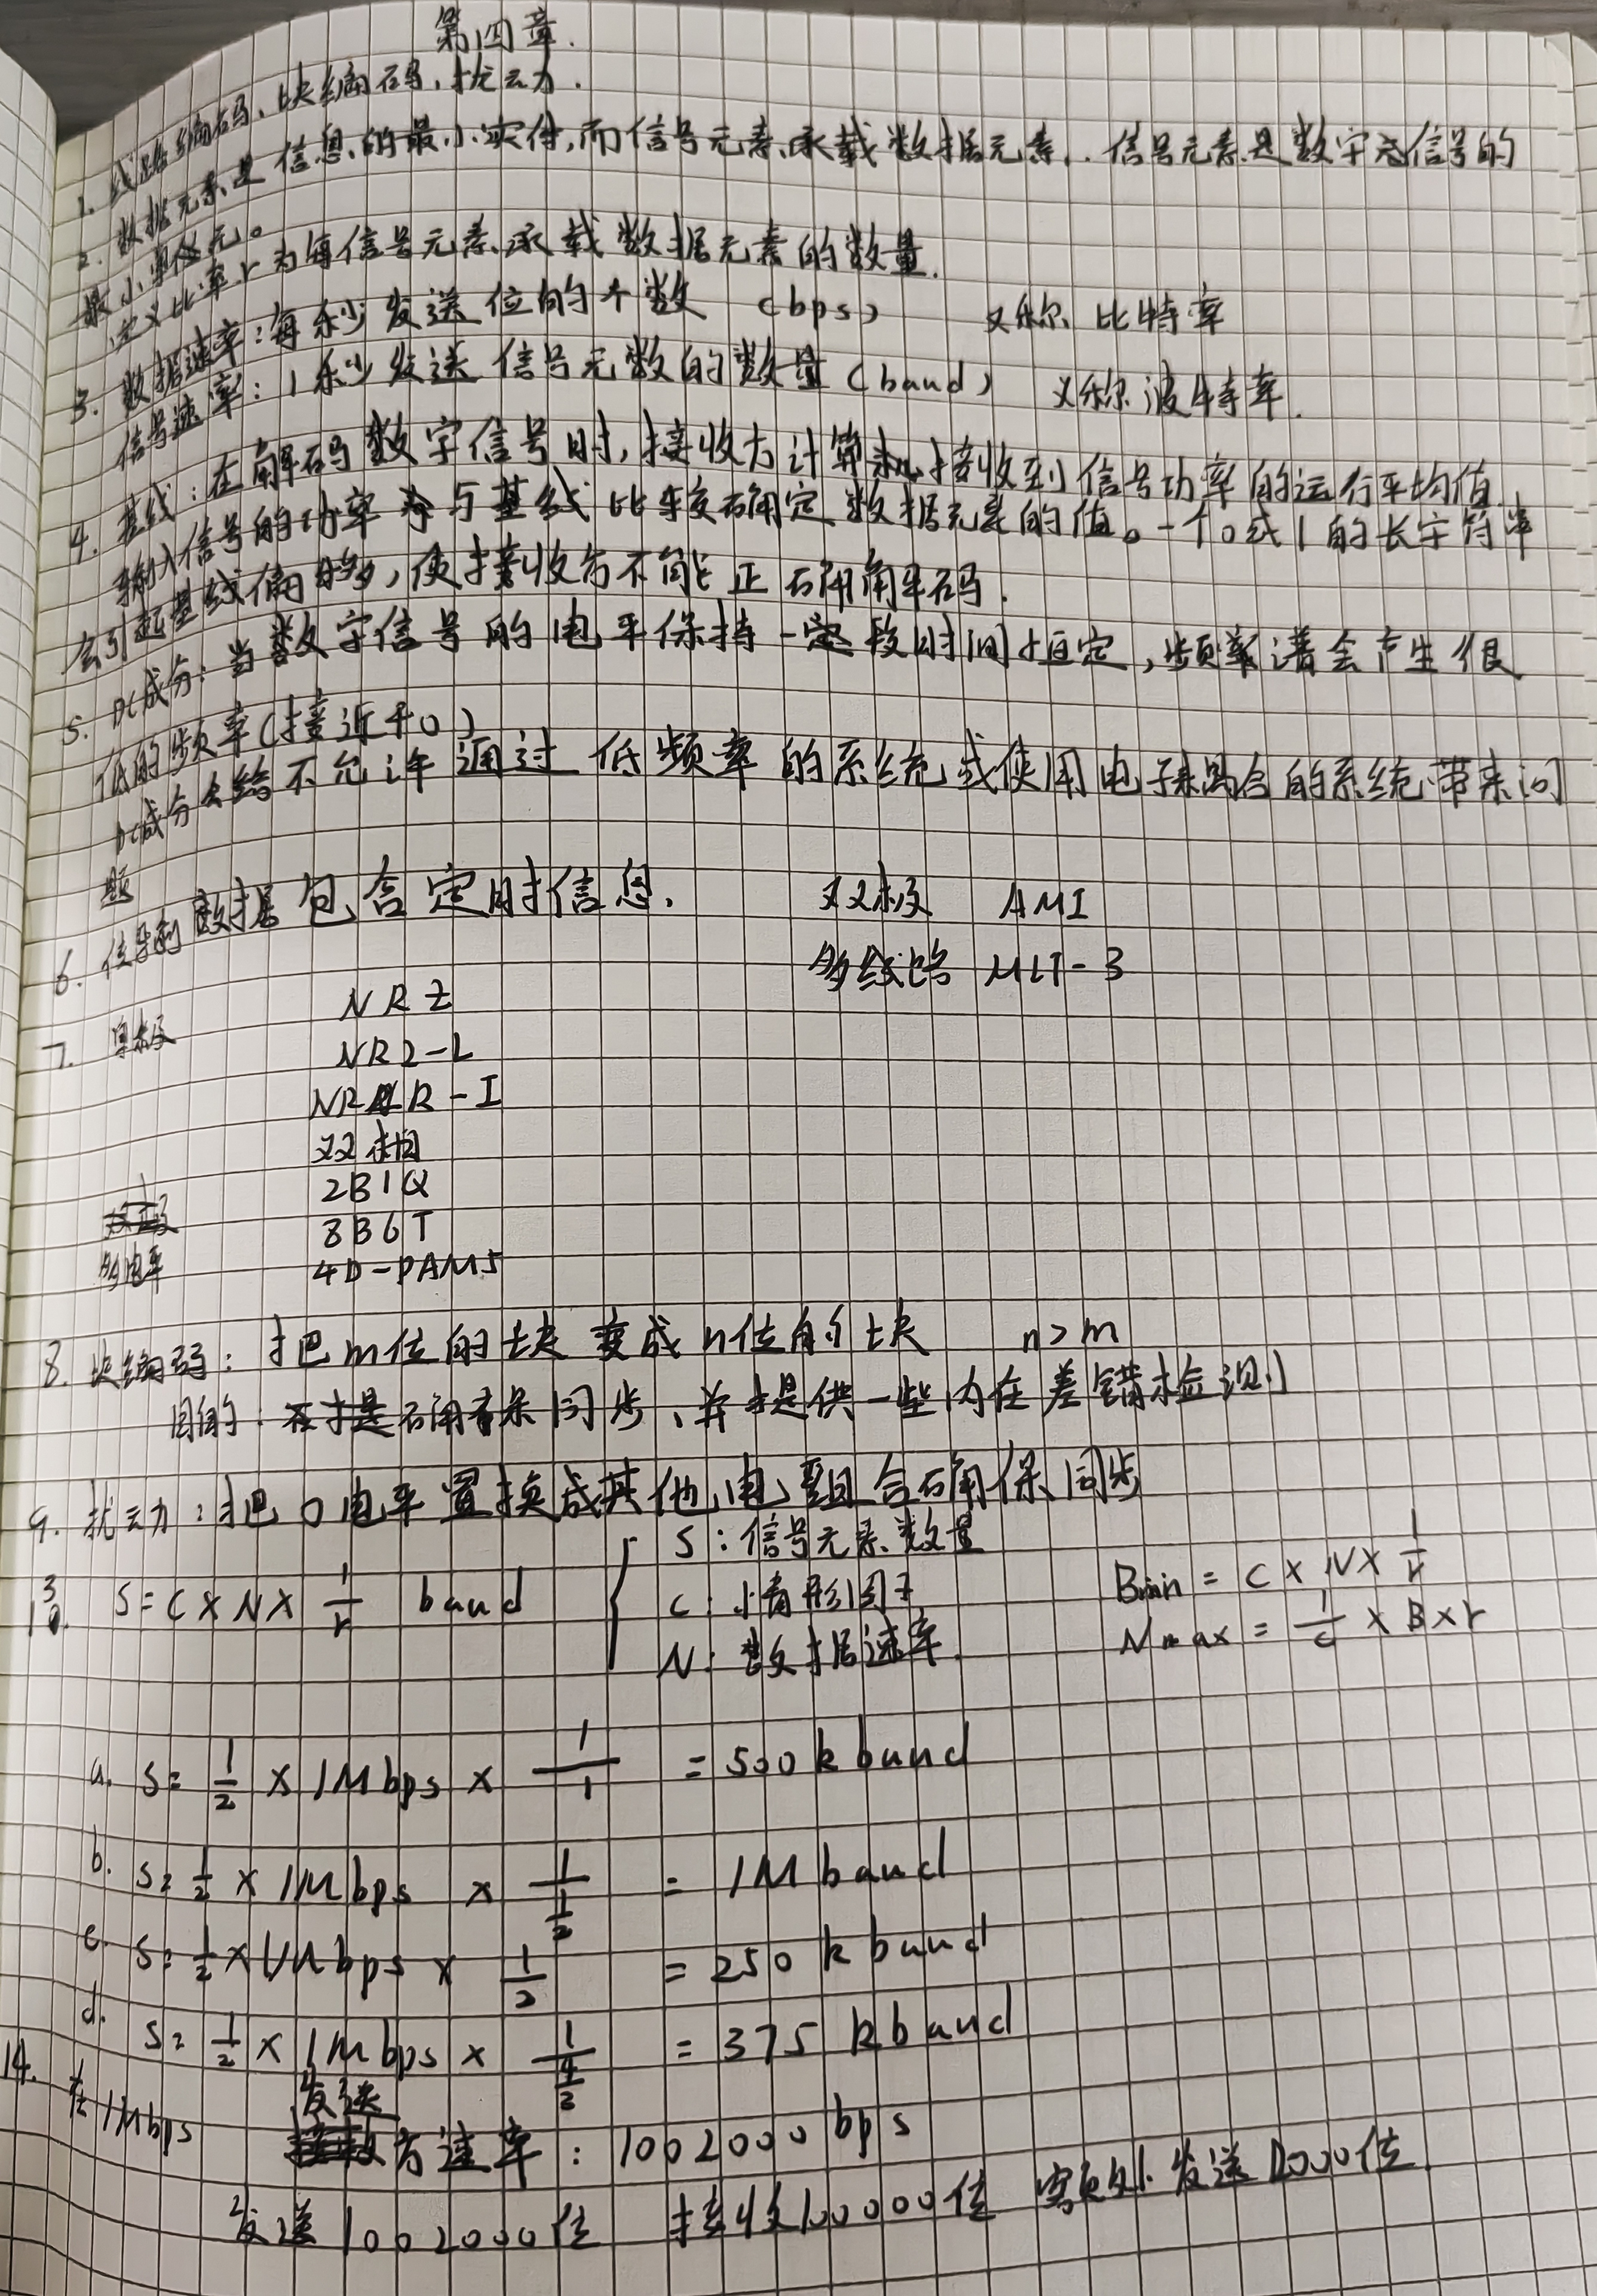 第四章.
1. 线路编码、块编码,扰动.
2. 数据元素是信息的最小实体,而信号元素承载数据元素. 信号元素是数字信号的
最小单位元。
定义比率r为每信号元素承载数据元素的数量.
3. 数据速率:每秒发送位的个数 (bps) 又称 比特率
信号速率:1秒发送信号元数的数量(baud) 又称波特率.
4. 基线:在解码数字信号时,接收方计算机接收到信号功率的运行平均值.
输入信号的功率与基线比较确定数据元素的值。一个0或1的长字符串
会引起基线偏移,使接收方不能正确解码.
5. DC成分:当数字信号的电平保持一段时间恒定,频率谱会产生很
低的频率(接近于0)
DC成分给不允许通过低频率的系统或使用电子耦合的系统带来问
题
6. 信号 数据包含定时信息. 双极 AMI
多线路 MLT-3
7. 单极 NRZ
NRZ-L
NR R-I
双相
2B1Q
8B6T
多电平 4D-PAM5
8. 块编码:把m位的块变成n位的块 n>m
目的:提确保同步、并提供一些内在差错检测
9. 扰动:把0电平置换成其他电组合确保同步
13. S=C×N×1/r baud { S:信号元素数量 Bmin = C×N×1/r
C:情形因子 Nmax = 1/c ×B×r
N:数据速率.
a. S= 1/2 × 1Mbps × 1/1 = 500k baud
b. S= 1/2 × 1Mbps × 1/(1/2) = 1M baud
c. S= 1/2 ×1Mbps × 1/2 = 250k baud
d. S= 1/2 × 1Mbps × 1/(4/3) = 375 kbaud
14. 在1Mbps 发送方速率:1002000 bps
发送1002000位 接收1000000位 额外发送2000位.